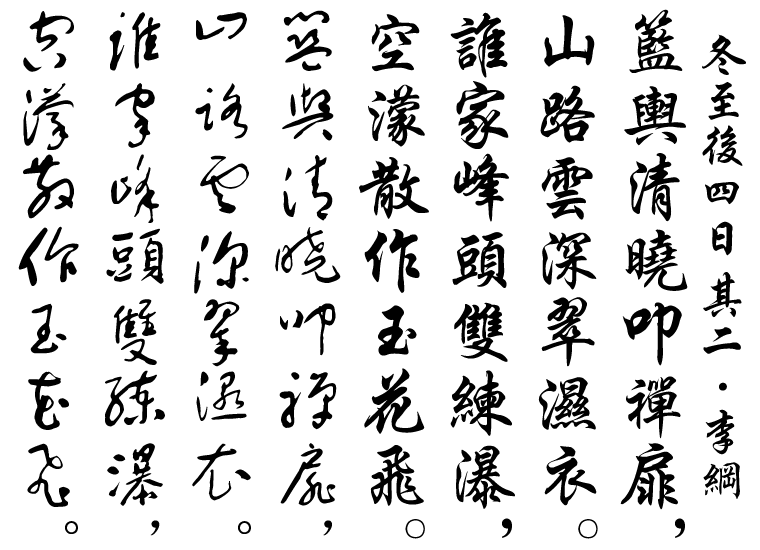 冬至後四日其二·李綱
籃輿清曉叩禪扉，
山路雲深翠濕衣。
誰家峰頭雙練瀑，
空濛散作玉花飛。
籃輿清曉叩禪扉，
山路雲深翠濕衣。
誰家峰頭雙練瀑，
空濛散作玉花飛。